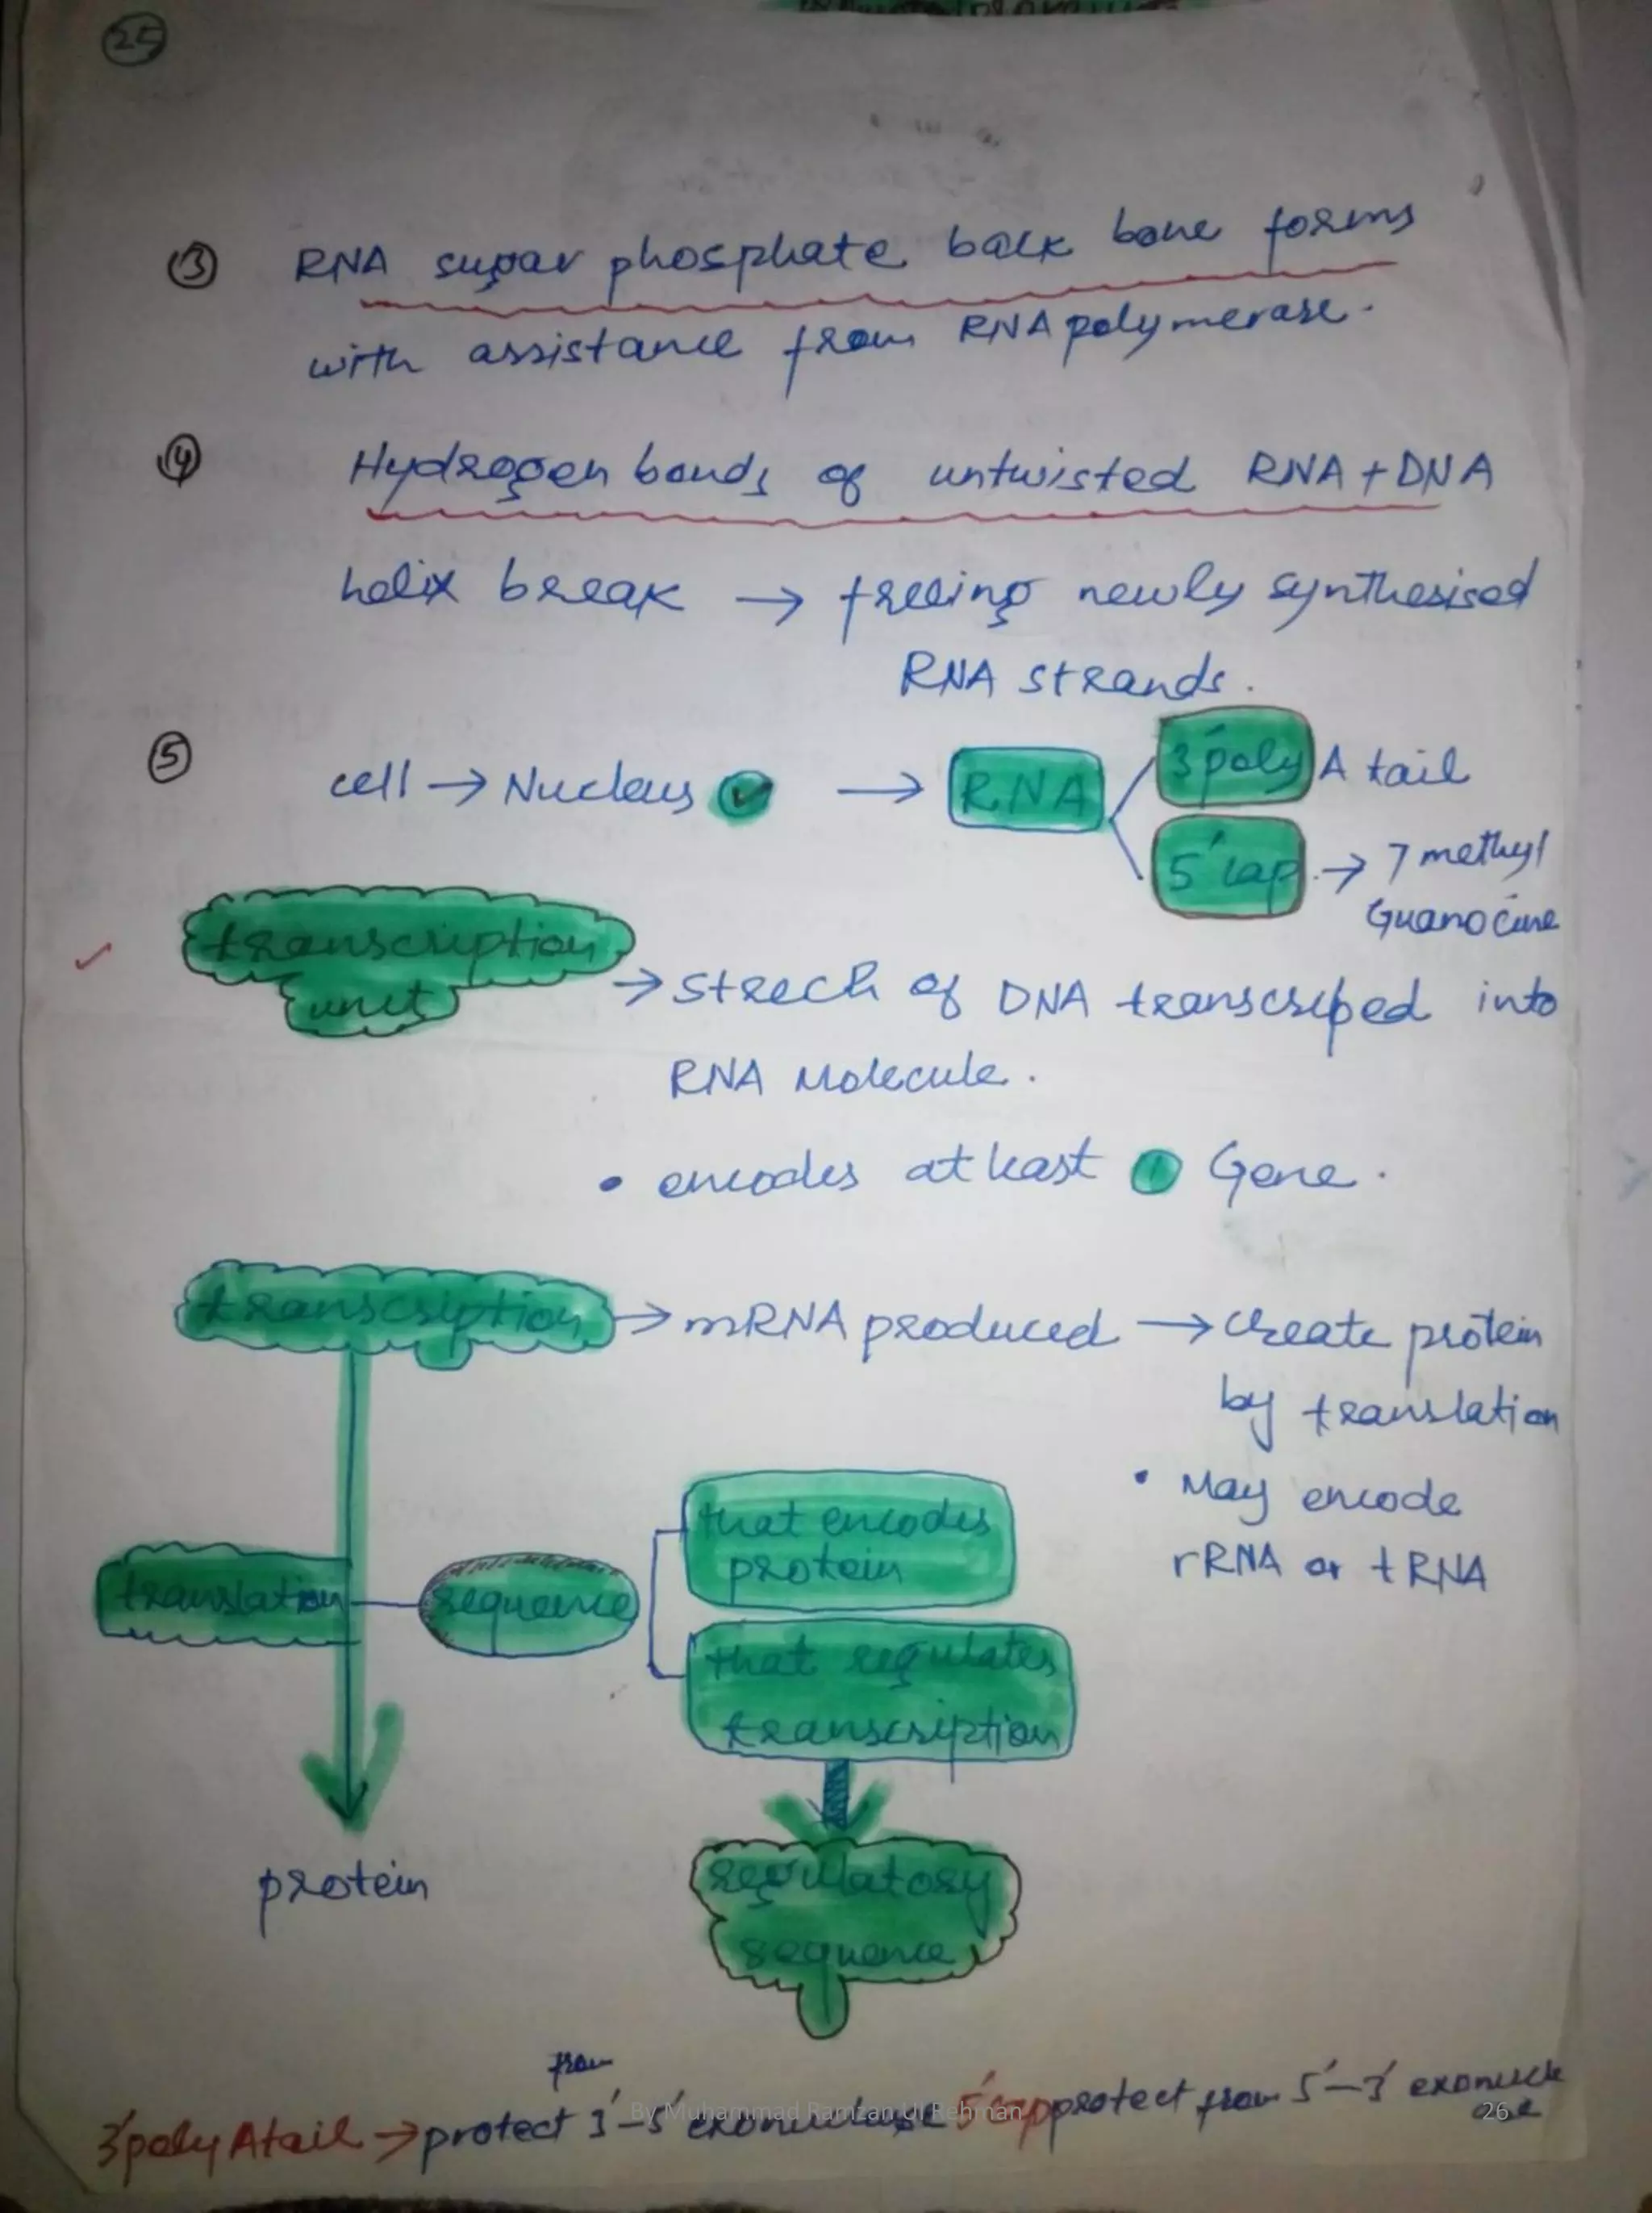 25
3 RNA sugar phosphate back bone forms
with assistance from RNA polymerase.
4 Hydrogen bonds of untwisted RNA + DNA
helix break → freeing newly synthesised
RNA strands.
5 cell → Nucleus ✓ → RNA
3' poly A tail
5' cap → 7 methyl
Guanocine
✓ transcription
unit
→ strech of DNA transcriped into
RNA Molecule.
• encodes at least 1 Gene.
transcription → mRNA produced → create protein
by translation
• May encode
rRNA or tRNA
that encodes
protein
translation
sequence
that regulates
transcription
protein
regulatory
sequence
from
3' poly A tail → protect 3'-5' exonuclease 5' cap protect from 5'-3' exonucle
ase
By Muhammad Ramzan Ul Rehman
26